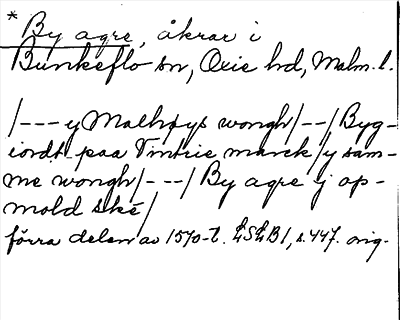 * By agre, åkrar i
Bunkeflo sn, Oxie hd, Malm. l.
/--- y Malhøys wongh/--/ Byg-
iordt paa Vintrie marck/ y sam-
me wongh/---/ By agre j op-
mold ske/
förra delen av 1570-t. LSLB1, s. 447. orig.